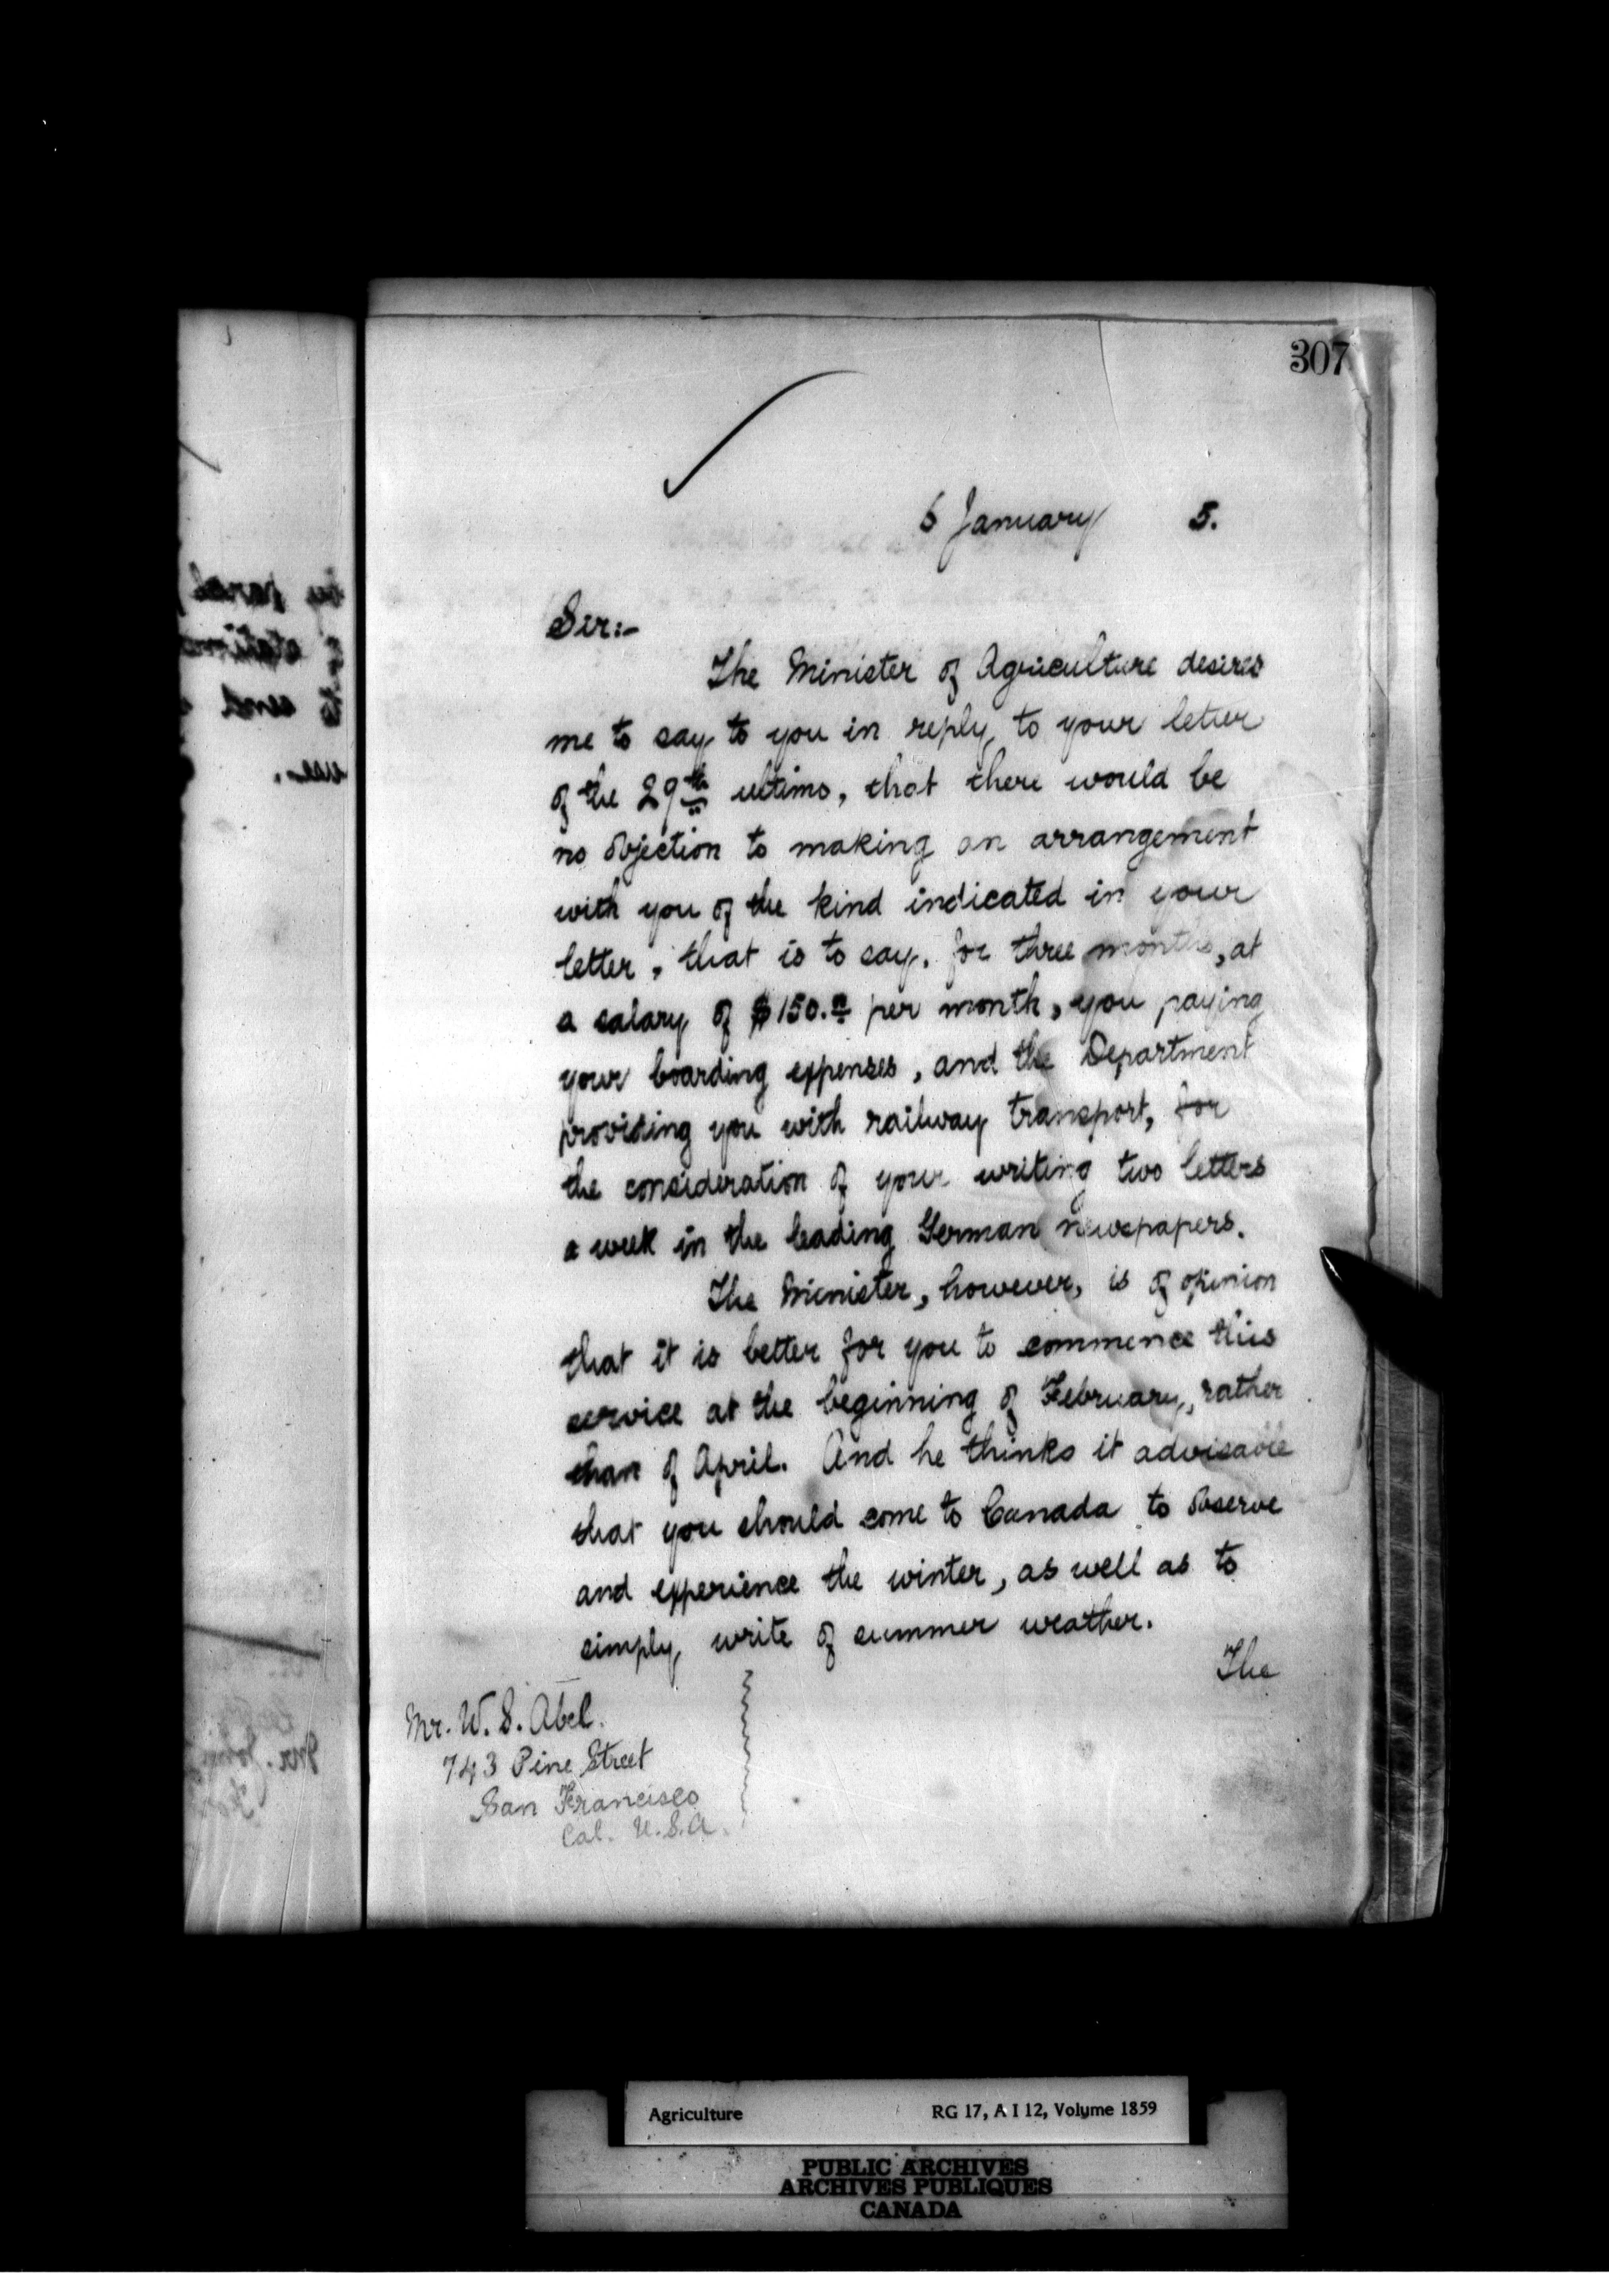 307
6 January 5.
Sir:-
The Minister of Agriculture desires
me to say to you in reply to your letter
of the 29th ultimo, that there would be
no objection to making an arrangement
with you of the kind indicated in your
letter, that is to say, for three months, at
a salary of $150.00 per month, you paying
your boarding expenses, and the Department
providing you with railway transport, for
the consideration of your writing two letters
a week in the leading German newspapers.
The Minister, however, is of opinion
that it is better for you to commence this
service at the beginning of February, rather
than of April. And he thinks it advisable
that you should come to Canada to observe
and experience the winter, as well as to
simply write of summer weather.
The
Mr. W. S. Abel.
743 Pine Street
San Francisco
Cal. U.S.A.
Agriculture RG 17, A I 12, Volume 1859
PUBLIC ARCHIVES
ARCHIVES PUBLIQUES
CANADA